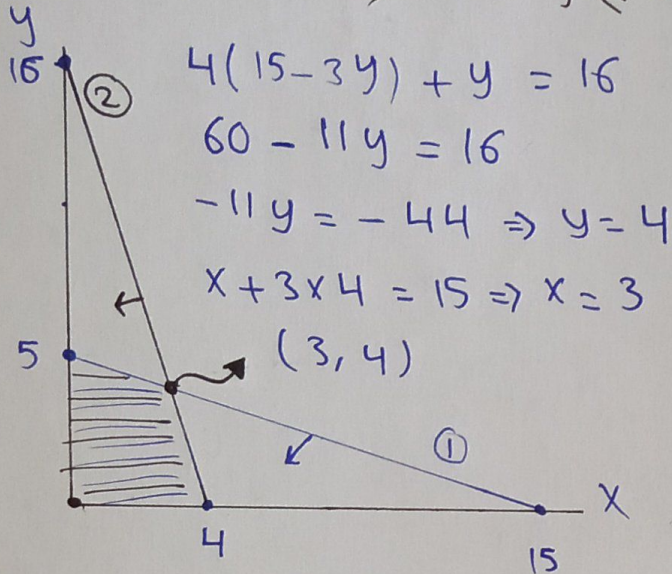 y
16
②
4(15-3y) + y = 16
60 - 11y = 16
-11y = -44 ⇒ y = 4
x + 3×4 = 15 ⇒ x = 3
5
(3, 4)
①
x
4
15